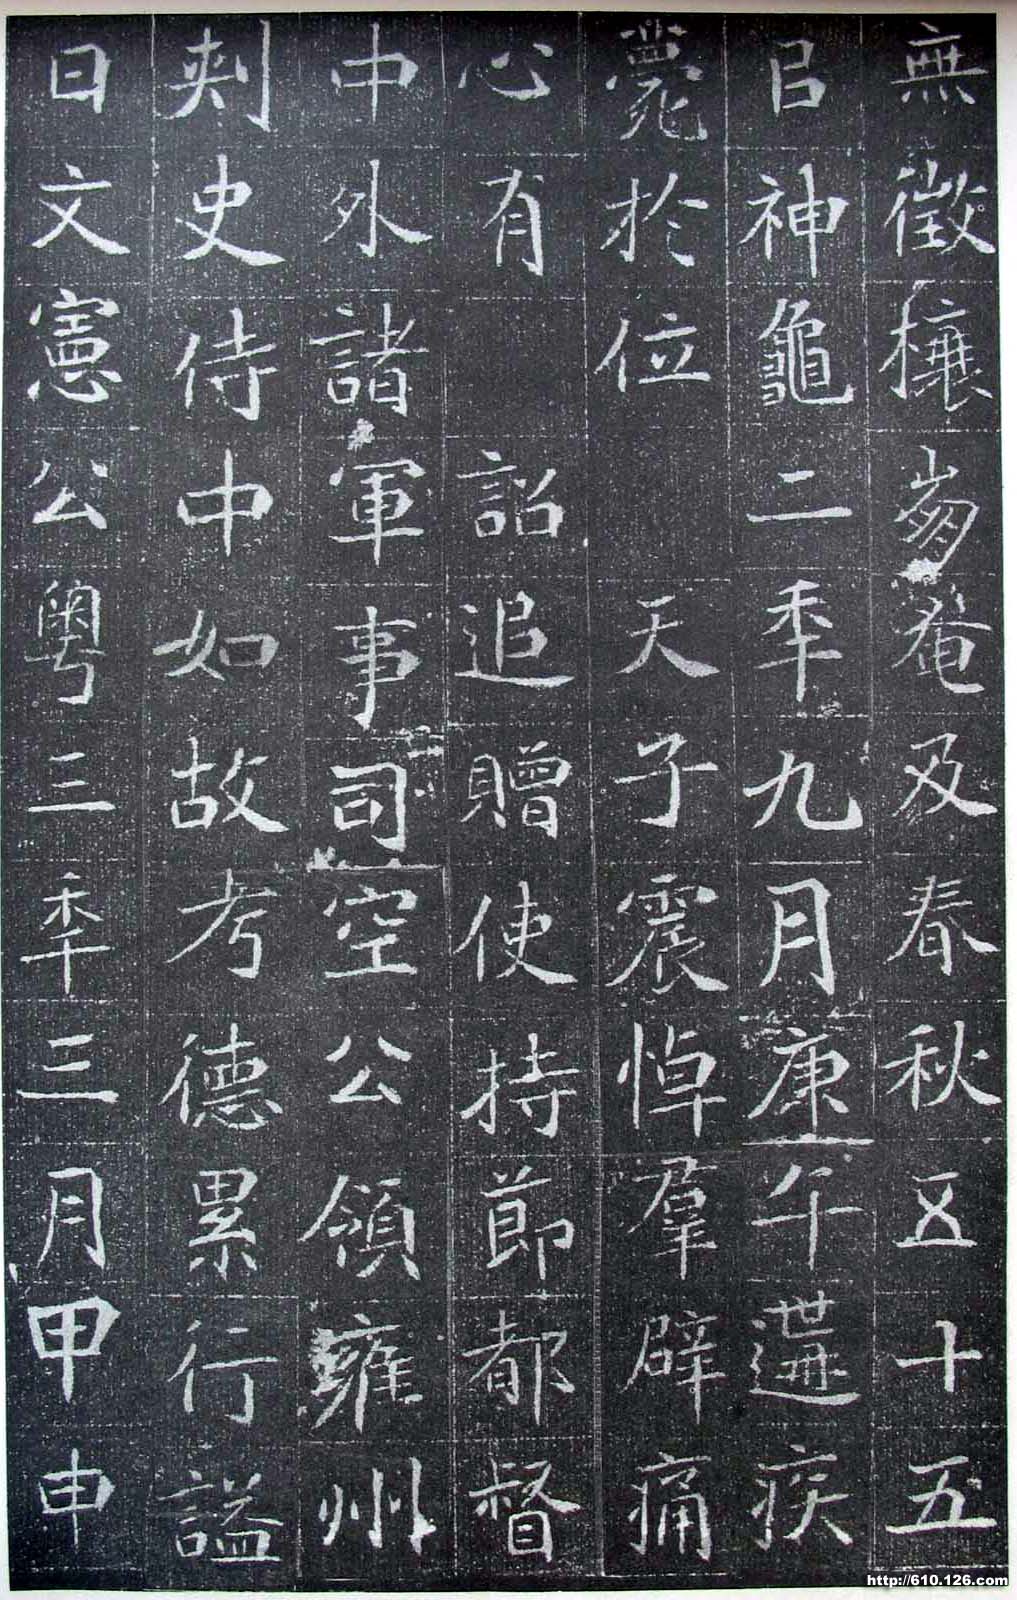 無徵欀芻奄及春秋五十五
㠯神龜二秊九月庚午遘疾
薨於位天子震悼羣辟痛
心有詔追贈使持節都督
中外諸軍事司空公領雍州
刺史侍中如故考德累行謚
曰文憲公粵三秊三月甲申
http://610.126.com